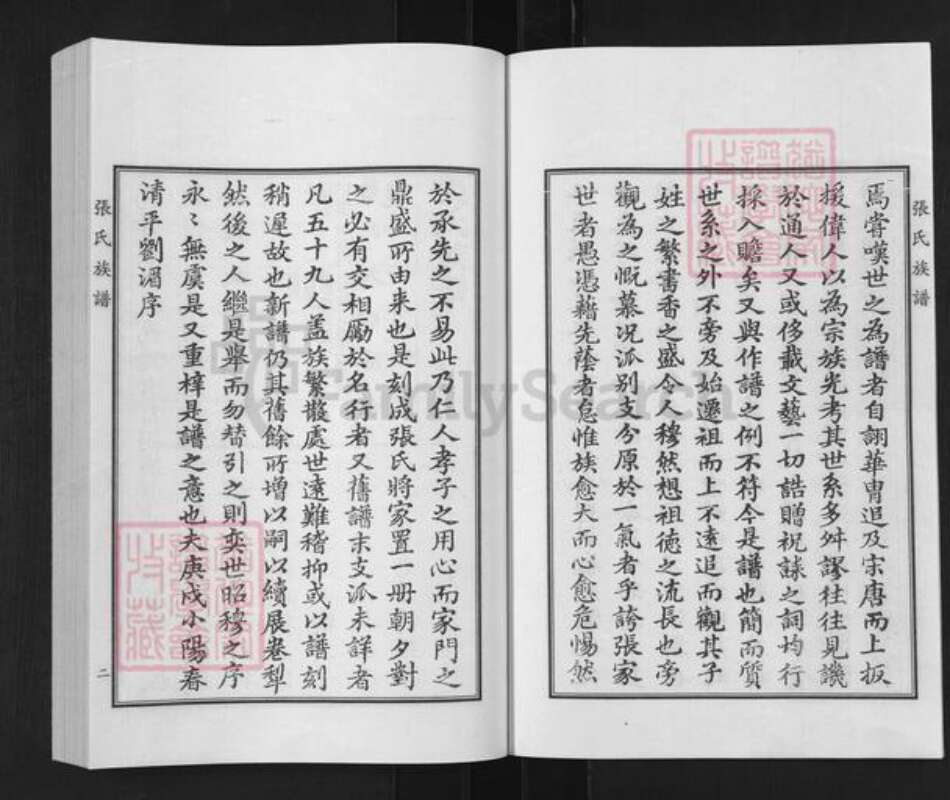 張氏族譜
焉嘗嘆世之為譜者自詡華冑追及宋唐而上扳
援偉人以為宗族光考其世系多舛謬往往見譏
於通人又或侈載文藝一切誥贈祝詠之詞均行
採入贍矣又與作譜之例不符今是譜也簡而質
世系之外不旁及始遷祖而上不遠追而觀其子
姓之繁書香之盛令人穆然想祖德之流長也旁
觀為之慨慕况派别支分原於一氣者乎誇張家
世者愚憑藉先蔭者怠惟族愈大而心愈危惕然
於承先之不易此乃仁人孝子之用心而家門之
鼎盛所由来也是刻成張氏將家置一册朝夕對
之必有交相勵於名行者又舊譜末支派未詳者
凡五十九人盖族繁散處世遠難稽抑或以譜刻
稍遲故也新譜仍其舊餘所增以嗣以續展卷犁
然後之人繼是舉而勿替引之則奕世昭穆之序
永〻無虞是又重梓是譜之意也夫庚戌小陽春
清平劉湄序
張氏族譜
二
FamilySearch